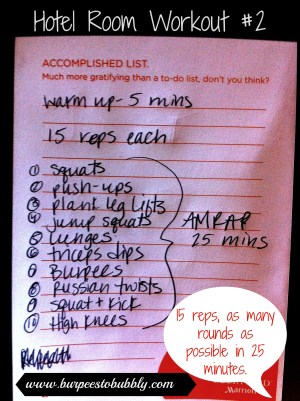 Hotel Room Workout #2
ACCOMPLISHED LIST.
Much more gratifying than a to-do list, don't you think?
warm up - 5 mins
15 reps each
1 squats
2 push-ups
3 plank leg lifts
4 jump squats
5 lunges
6 triceps dips
7 Burpees
8 Russian twists
9 squat + kick
10 High Knees
AMRAP
25 mins
15 reps, as many
rounds as
possible in 25
minutes.
Marriott
www.burpeestobubbly.com